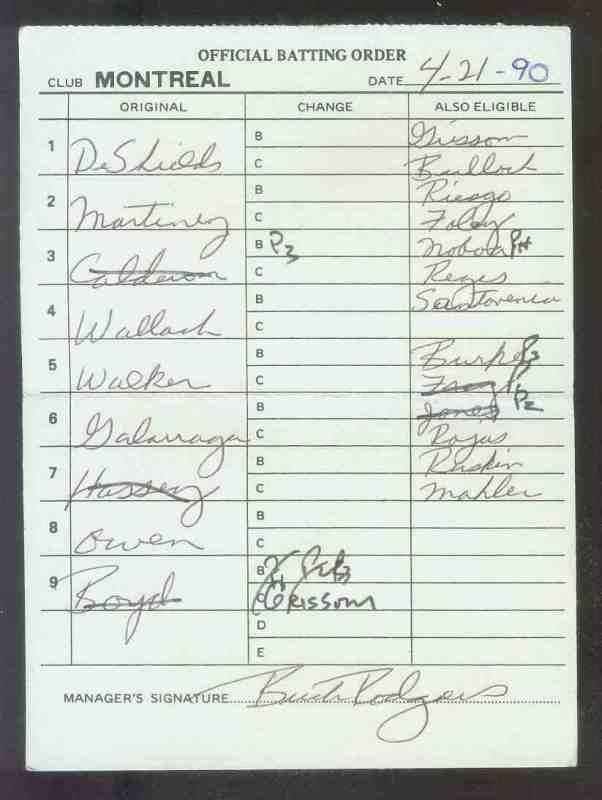 OFFICIAL BATTING ORDER
CLUB MONTREAL DATE 4-21-90
ORIGINAL CHANGE ALSO ELIGIBLE
1 DeShields B Grissom
C Bullock
2 Martinez B Riesgo
C Foley
3 Calderon B P3 Noboa PH
C Reyes
4 Wallach B Santovenia
C
5 Walker B Burke P3
C Frey P1
6 Galarraga B Jones P2
C Rojas
7 Hassey B Raskin
C Mahler
8 Owen B
C
9 Boyd B
C GRISSOM
D
E
MANAGER'S SIGNATURE Buck Rodgers